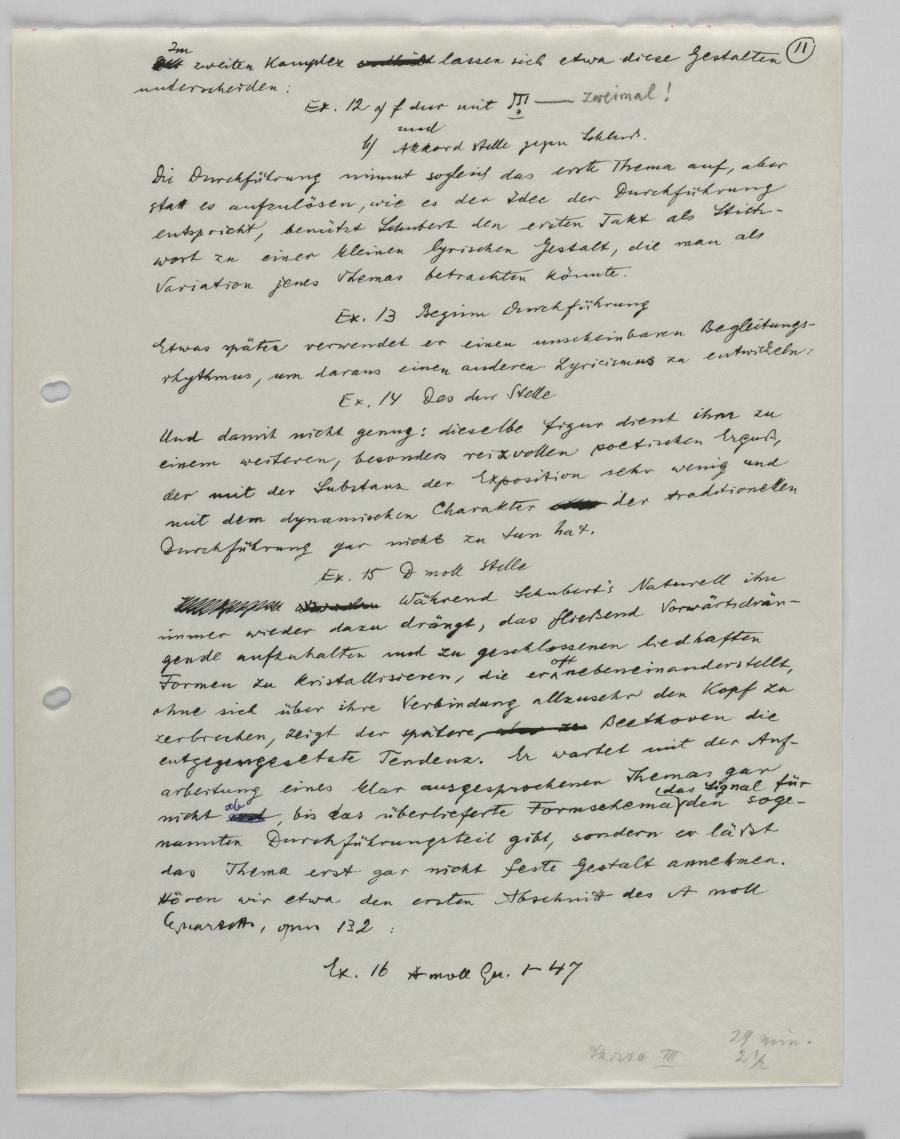 11
Im
zweiten Komplex lassen sich etwa diese Gestalten
unterscheiden:
Ex. 12 a) F dur mit III — zweimal!
und
b) Akkord stelle gegen Schluß.
Die Durchführung nimmt sogleich das erste Thema auf, aber
statt es aufzulösen, wie es der Idee der Durchführung
entspricht, benützt Schubert den ersten Takt als Stich-
wort zu einer kleinen lyrischen Gestalt, die man als
Variation jenes Themas betrachten könnte.
Ex. 13 Beginn Durchführung
Etwas später verwendet er einen unscheinbaren Begleitungs-
rhythmus, um daraus einen anderen Lyricismus zu entwickeln:
Ex. 14 Des dur Stelle
Und damit nicht genug: dieselbe Figur dient ihm zu
einem weiteren, besonders reizvollen poetischen Erguß,
der mit der Substanz der Exposition sehr wenig und
mit dem dynamischen Charakter der traditionellen
Durchführung gar nichts zu tun hat.
Ex. 15 D moll Stelle
Während Schubert's Naturell ihn
immer wieder dazu drängt, das fließend Vorwärtsdrän-
gende aufzuhalten und zu geschlossenen liedhaften
Formen zu kristallisieren, die er oft nebeneinanderstellt,
ohne sich über ihre Verbindung allzusehr den Kopf zu
zerbrechen, zeigt der spätere Beethoven die
entgegengesetzte Tendenz. Er wartet mit der Auf-
arbeitung eines klar ausgesprochenen Themas gar
nicht ab, bis das überlieferte Formschema (das Signal für) den soge-
nannten Durchführungsteil gibt, sondern er läßt
das Thema erst gar nicht feste Gestalt annehmen.
Hören wir etwa den ersten Abschnitt des A moll
Quartetts, opus 132 :
Ex. 16 A moll Qu. 1-47
29 min.
III 2 1/2